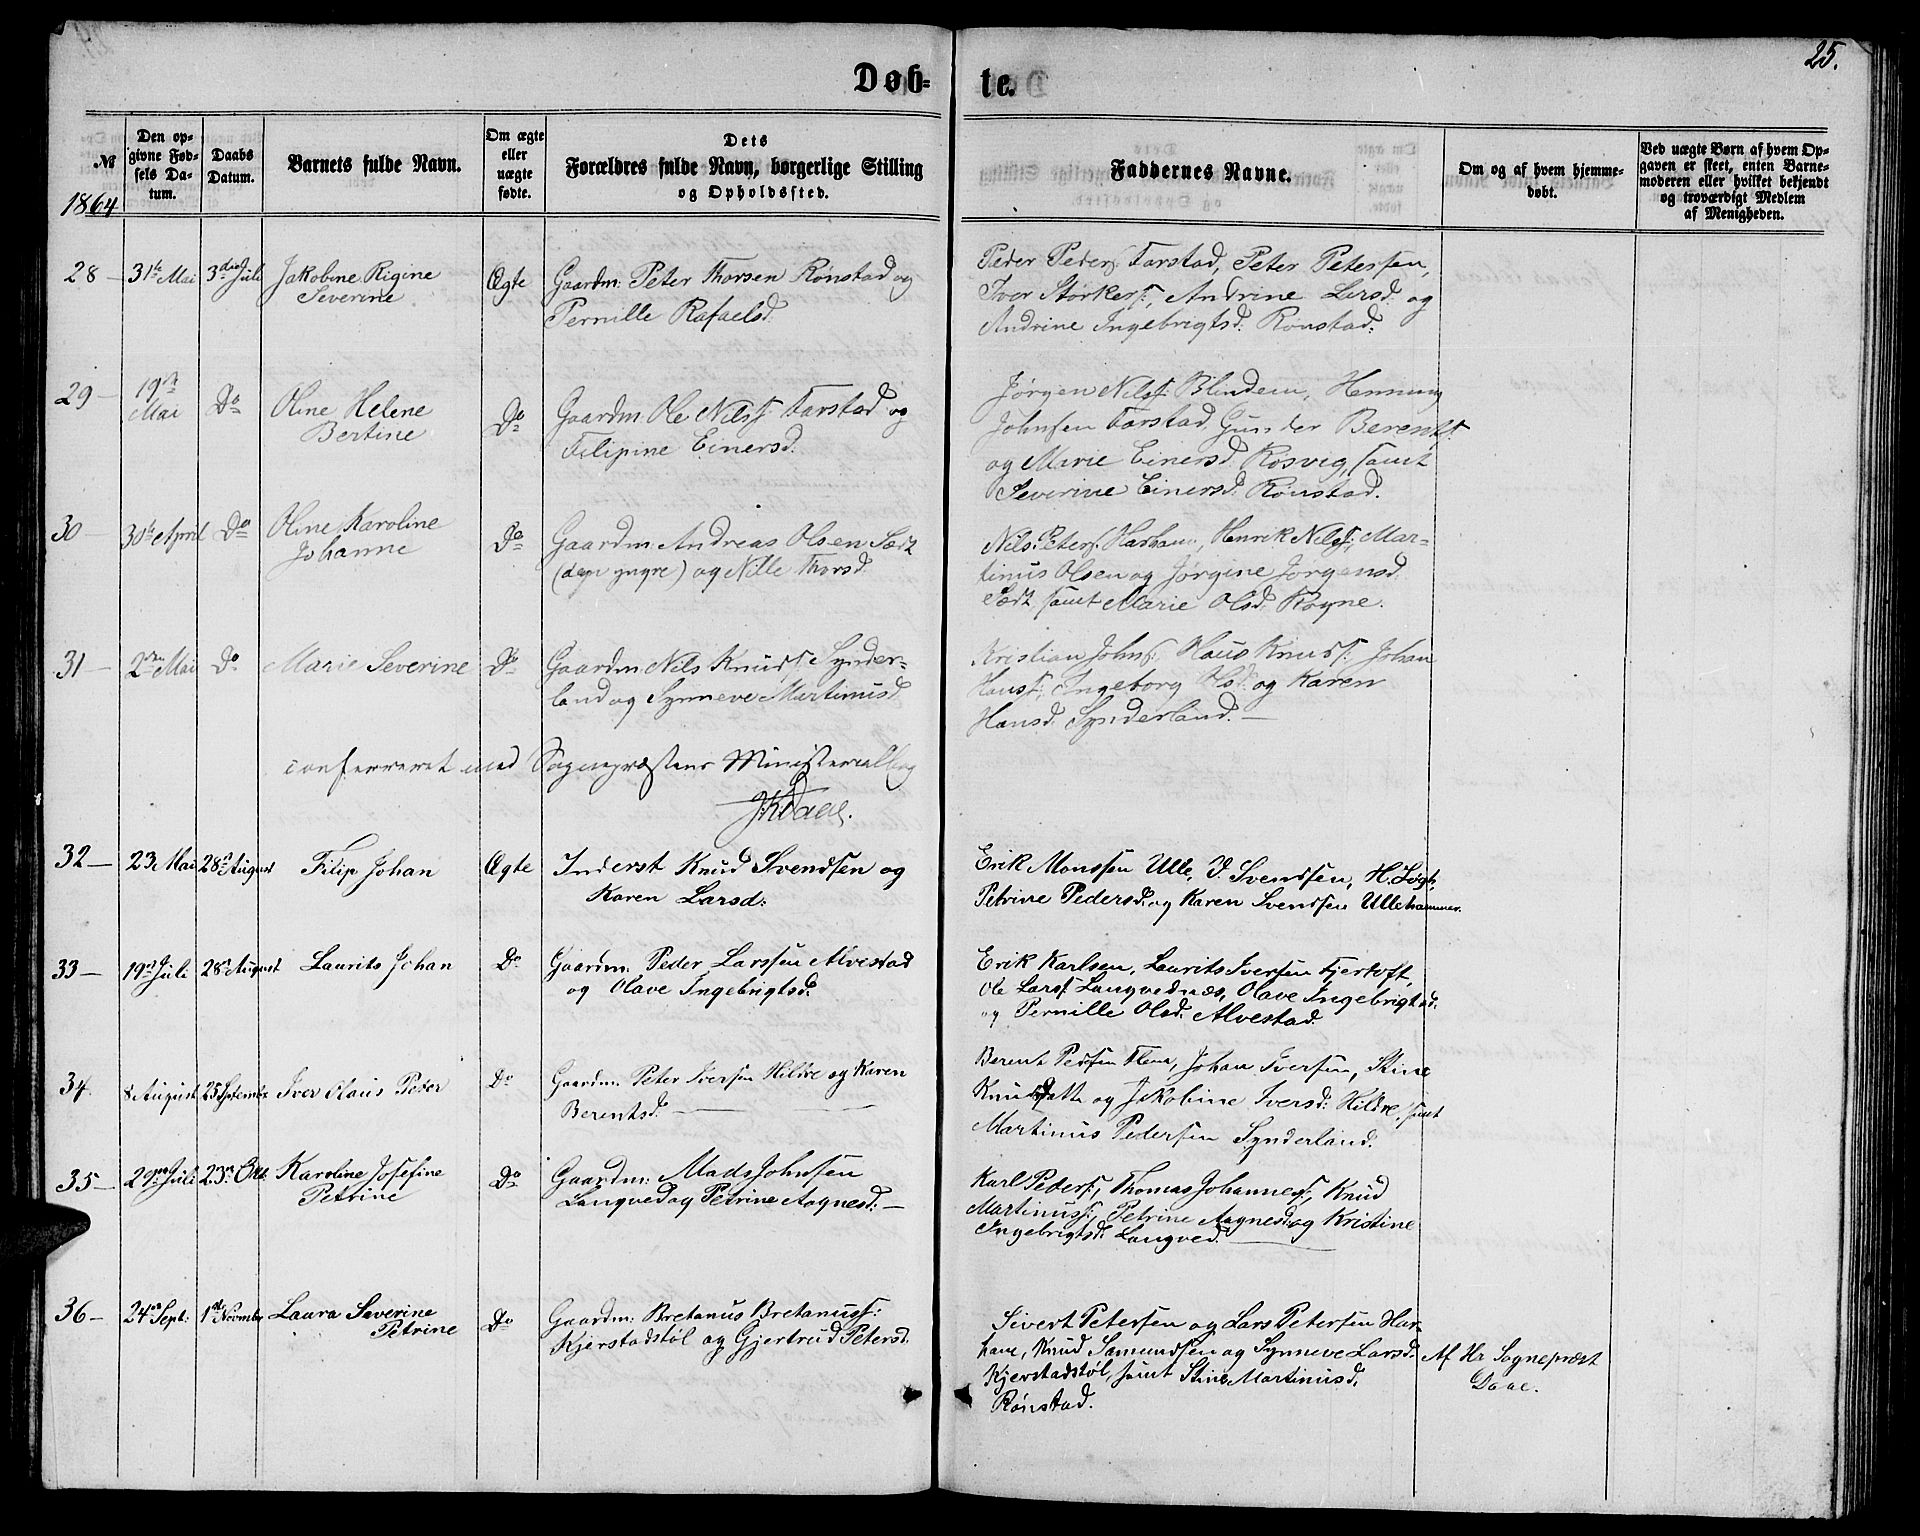 25.
Døb-
te.
№
1864
Den op-
givne Fød-
sels Da-
tum.
Daabs
Datum.
Barnets fulde Navn.
Om ægte
eller
uægte
fødte.
Dets
Forældres fulde Navn, borgerlige Stilling
og Opholdssted.
Faddernes Navne.
Om og af hvem hjemme-
døbt.
Ved uægte Børn af hvem Op-
gaven er skeet, enten Barne-
moderen eller hvilket bekjendt
og troværdigt Medlem
af Menigheden.
28 31te Mai 3die Juli Jakobine Rigine
Severine
Ægte
Gaardm: Peter Thorsen Rønstad og
Pernille Rafaelsd.
Peder Peders. Farstad, Peter Petersen,
Iver Størkers:, Andrine Larsd: og
Andrine Ingebrigtsd: Rønstad.
29 19de
Mai
Do
Oline Helene
Bertine
Do
Gaardm: Ole Nilss: Farstad og
Filipine Einersd.
Jørgen Nilss: Blindem, Henning
Johnsen Farstad, Gunder Berents:
og Marie Einersd: Røsvig, samt
Severine Einersd: Rønstad.
30 30te April Do
Oline Karoline
Johanne
Do
Gaardm: Andreas Olsen Sætt
(den yngre) og Nille Thorsd.
Nils Peters: Harham, Henrik Nilss:, Mar-
tinus Olsen og Jørgine Jørgensd.
Sætt, samt Marie Olsd: Røgne.
31 2den Mai Do Marie Severine Do
Gaardm: Nils Knuds: Synder-
land og Synneve Martinusd
Kristian Johns: Hans Knuds: Johan
Hans:, Ingeborg Olsd: og Karen
Hansd. Synderland. —
conferreret med Sognepræstens Ministerialbog
J.K. Daae.
32 23 Mai 28n August Filip Johan Ægte
Inderst Knud Svendsen og
Karen Larsd:
Erik Monssen Ulle, I. Svendsen, H. Søgt,
Petrine Pedersd: og Karen Svendsen Ullehammer.
33 19n Juli 28n August Laurits Johan Do
Gaardm: Peder Larssen Alvestad
og Olave Ingebrigtsd:
Erik Karlsen, Laurits Iversen Fjertoft,
Ole Lars: Langvednæs, Olave Ingebrigtsd:
og Pernille Olsd. Alvestad.
34. 8 August 25 Septembr Iver Olaus Peter Do
Gaardm: Peter Iversen Hildre og Karen
Berentsd. —
Berent Pedersen Flem, Johan Iversen, Stine
Knudsdatt og Jakobine Iversd: Hildre, samt
Martinus Pedersen Synderland.
35 29n Juli 23n Okt. Karoline Josefine
Petrine
Do
Gaardm: Mads Johnsen
Langved og Petrine Aagnesd: —
Karl Peders:, Thomas Johanness:, Knud
Martinuss:, Petrine Aagnesd og Kristine
Ingebrigtsd: Langved.
36 24n Sept: 1ste Novmbr Laura Severine
Petrine
Do
Gaardm: Bretanus Bretanuss:
Kjerstadstøl og Gjertrud Petersd.
Sivert Petersen og Lars Petersen Har-
ham, Knud Samundsen og Synneve Larsd.
Kjerstadstøl, samt Stine Martinusd.
Rønstad.
Af Hr Sognepræst
Daae.